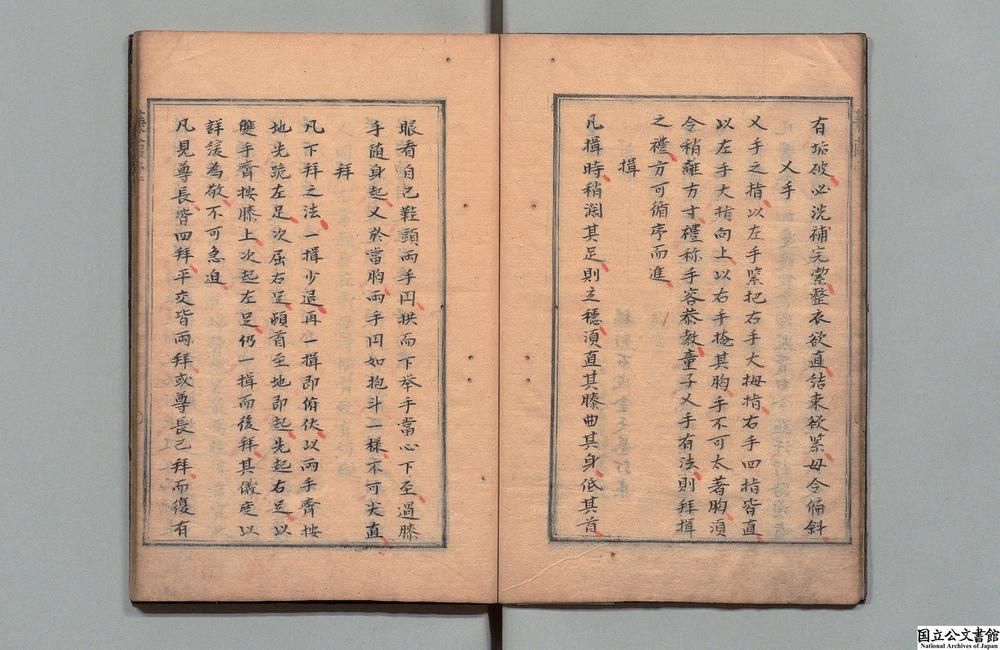 有垢破必洗補完潔整衣欲直結束欲緊毋令偏斜
乂手
乂手之指以左手緊把右手大拇指右手四指皆直
以左手大指向上以右手掩其胸手不可太著胸湏
令稍離方寸禮称手容恭教童子乂手有法則拜揖
之禮方可循序而進
揖
凡揖時稍濶其足則立穩湏直其膝曲其身低其首
眼看自己鞋頭兩手円拱而下举手當心下至過膝
手随身起乂於當胸兩手円如抱斗一様不可尖直
拜
凡下拜之法一揖少退再一揖即俯伏以兩手齊按
地先跪左足次屈右足頓首至地即起先起右足以
雙手齊按膝上次起左足仍一揖而後拜其儀度以
詳緩為敬不可急迫
凡見尊長皆四拜平交皆兩拜或尊長已拜而復有
国立公文書館
National Archives of Japan